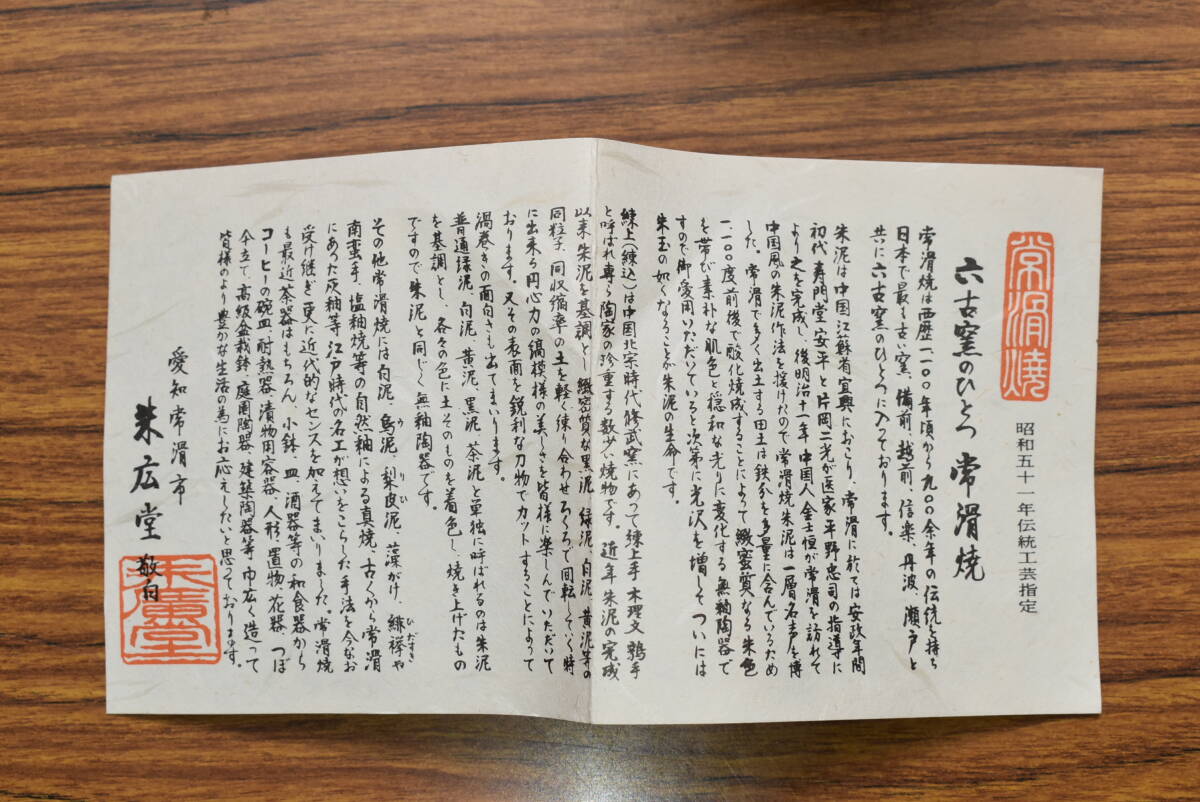 常滑焼
昭和五十一年伝統工芸指定
六古窯のひとつ 常滑焼
常滑焼は西歴一、一〇〇年頃から九〇〇余年の伝統を持ち
日本で最も古い窯、備前、越前、信楽、丹波、瀬戸と
共に六古窯のひとつに入っております。
朱泥は中国江蘇省宜興におこり、常滑に於ては安政年間
初代寿門堂安平と片岡二光が医家平野忠司の指導に
より之を完成し、後明治十一年中国人金士恒が常滑を訪れて
中国風の朱泥作法を授けたので常滑焼朱泥は一層名声を博
した。常滑で多く出土する田土は鉄分を多量に含んでいるため
一、一〇〇度前後で酸化焼成することによって緻密質なる朱色
を帯び素朴な肌色と穏和な光りに変化する無釉陶器で
すので御愛用いただいていると次第に光沢を増してついには
朱玉の如くなることが朱泥の生命です。
練上(練込)は中国北宗時代修武窯にあって練上手 木理文 鶉手
と呼ばれ専ら陶家の珍重する数少い焼物です。近年朱泥の完成
以来 朱泥を基調とし緻密質な黒泥、緑泥、白泥、黄泥等の
同粒子、同収縮率の土を軽く練り合わせろくろで回転していく特
に出来る円心力の縞模様の美しさを皆様に楽しんでいただいて
おります。又その表面を鋭利な刃物でカットすることによって
渦巻きの面白さも出てまいります。
普通緑泥、白泥、黄泥、黒泥、茶泥と単独に呼ばれるのは朱泥
を基調とし、各々の色に土そのものを着色し、焼き上げたもの
ですので朱泥と同じく無釉陶器です。
その他常滑焼には白泥、烏泥、梨皮泥、藻がけ、緋襷や
南蛮手、塩釉焼等の自然釉による真焼、古くから常滑
にあった灰釉等江戸時代の名工が想いをこらした手法を今なお
受け継ぎ更に近代的なセンスを加えてまいりました。常滑焼
も最近茶器はもちろん、小鉢、皿、酒器等の和食器から
コーヒーの碗皿、耐熱器、漬物用容器、人形、置物、花器、つぼ
傘立て、高級盆栽鉢、庭園陶器、建築陶器等巾広く造って
皆様のより豊かな生活の為にお応えしたいと思っております。
愛知常滑市
朱広堂 敬白
朱廣堂